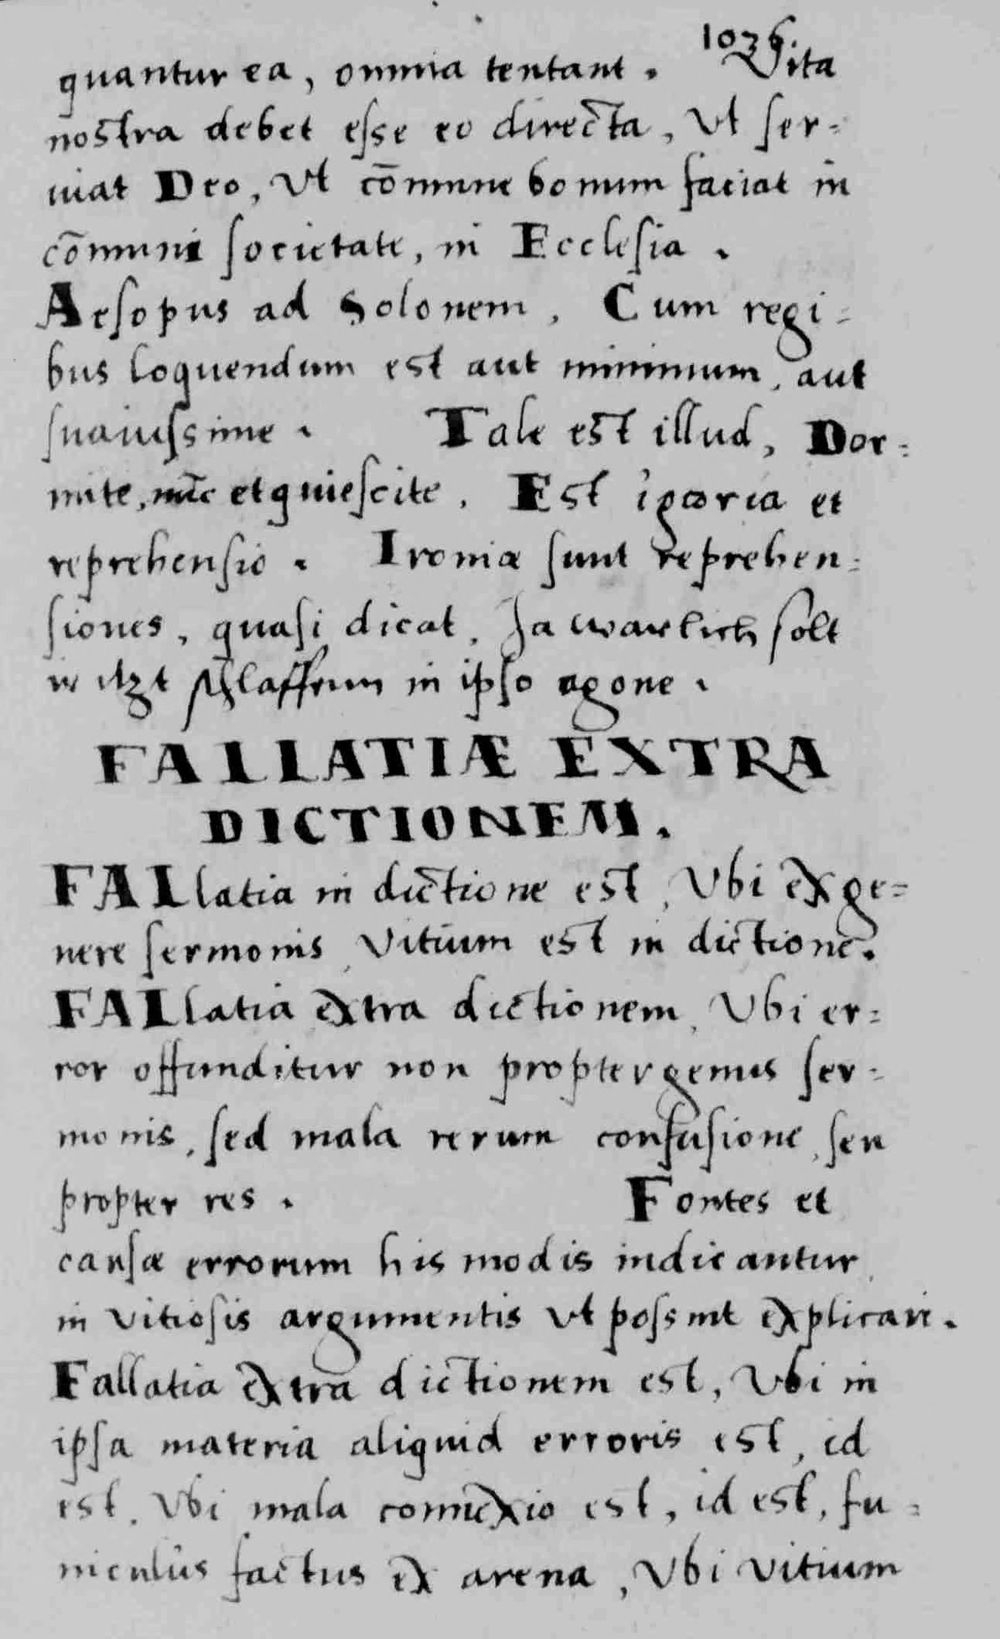 1036.
quantur ea, omnia tentant. Vita
nostra debet esse eo directa, Ut ser=
uiat Deo, Ut cōmune bonum faciat in
cōmuni societate, in Ecclesia.
Aesopus ad Solonem, Cum regi=
bus loquendum est aut minimum, aut
suauissime. Tale est illud, Dor=
mite, nūc et quiescite. Est et
reprehensio. Ironiæ sunt reprehen=
siones, quasi dicat, Ja warlich solt
ir itzt schlaffenn in ipso agone.
FALLATIÆ EXTRA
DICTIONEM.
FALlatia in dictione est, Ubi ex ge=
nere sermonis Vitium est in dictione.
FALlatia extra dictionem, Ubi er=
ror offunditur non propter genus ser=
monis, sed mala rerum confusione, seu
propter res. Fontes et
causæ errorum his modis indicantur
in vitiosis argumentis ut possint explicari.
Fallatia extra dictionem est, Ubi in
ipsa materia aliquid erroris est, id
est, Ubi mala connexio est, id est, fu=
niculus factus ex arena, Ubi vitium